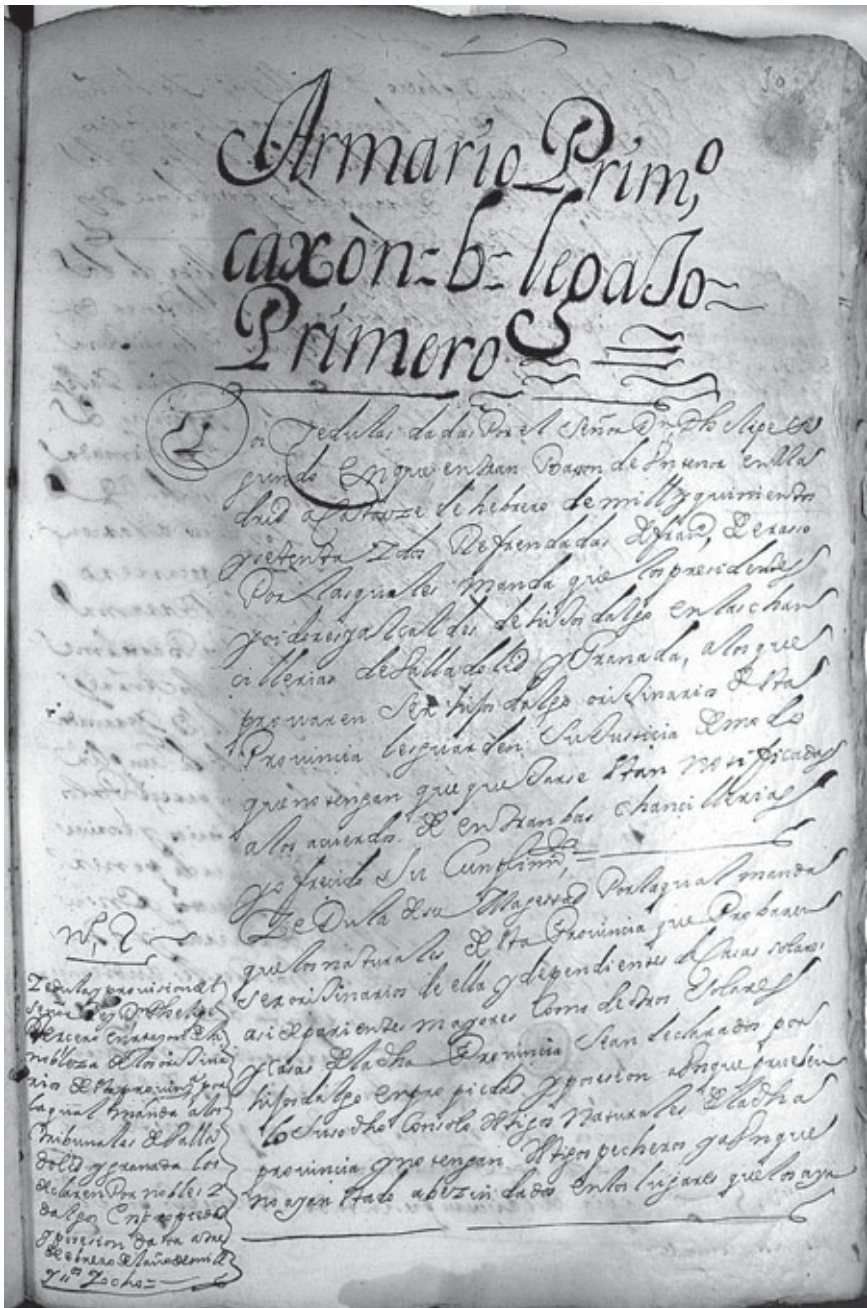 30
Armario Prim,º
caxòn = b = legaJo =
Primero
Dos Zedulas dadas Por el Señor Dn Phelipe Se
gundo en que entran Razon de In tenor en Ma
drid a Catorze de hebrero de mill y quinientos
y setenta Z dos Refrendadas de franco, de erasso
Por las quales manda que los presidentes
y oidores y alcaldes de hijos dalgo en las chan
cillerias de Valladolid y Granada, a los que
provaren ser hijos dalgo oriJinarios de esta
Provincia les guarden su Justicia de modo
que no tengan que quedarse estan notificadas
a los acuerdos de entranbas chancillerias
y ofrecido su Cunplimto,
Zedula de su Magestad Por la qual manda
que los naturales de esta Provincia que Probaren
ser oriJinarios de ella y dependientes de Casas solares
asi de parientes mayores Como de otros Solares
y Casas de la dha Provincia sean declarados por
hijos dalgo en pro piedad y posesion aunque prueben
lo Suso dho Con solo testigos Naturales de la dha
provincia y no tengan testigos pecheros y aunque
no ayan estado abezin dados en los lugares que los aya
no, 2
Zedula y provision del
señor Rey Dn Phelipe
tercero en razon de la
nobleza de los oriJina
rios de esta provinª por
la qual manda a los
tribunales de Valla
dolid y granada los
declaren Por nobles Z
dalgo en propiedad
y posesion data a tres
de hebrero del año de mill
y ios Z ocho =